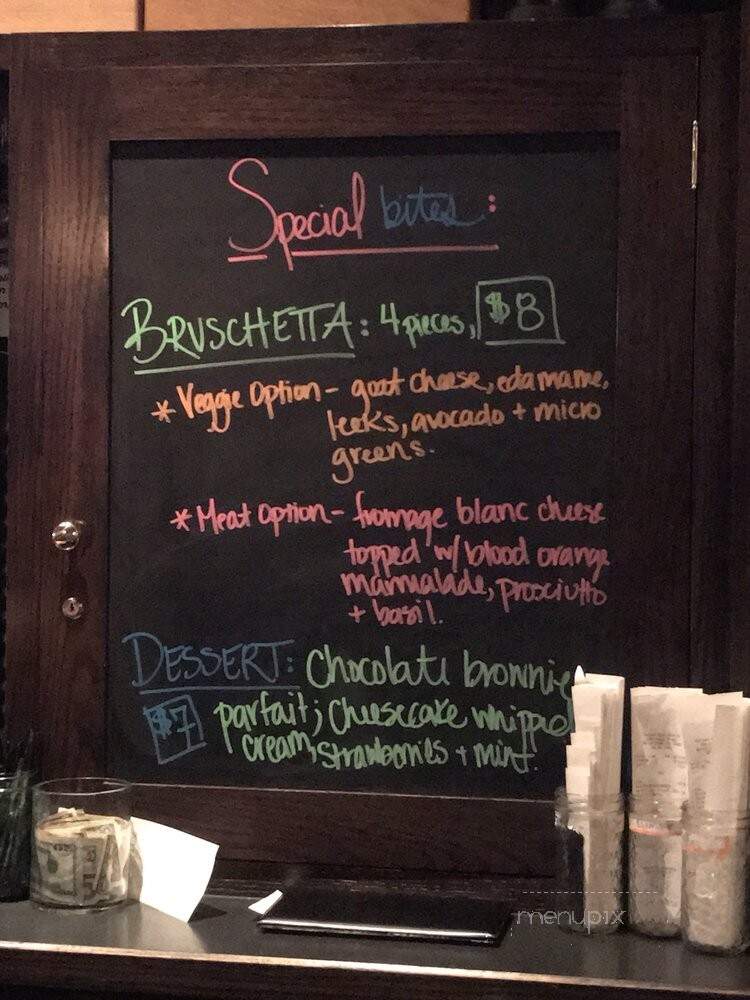 Special bites:
BRUSCHETTA: 4 pieces, $8
* Veggie Option - goat cheese, edamame,
leeks, avocado + micro
greens.
* Meat Option - fromage blanc cheese
topped w/ blood orange
marmalade, prosciutto
+ basil.
DESSERT: Chocolate brownie
$7 parfait; Cheesecake whipped
cream, strawberries + mint.
menupix